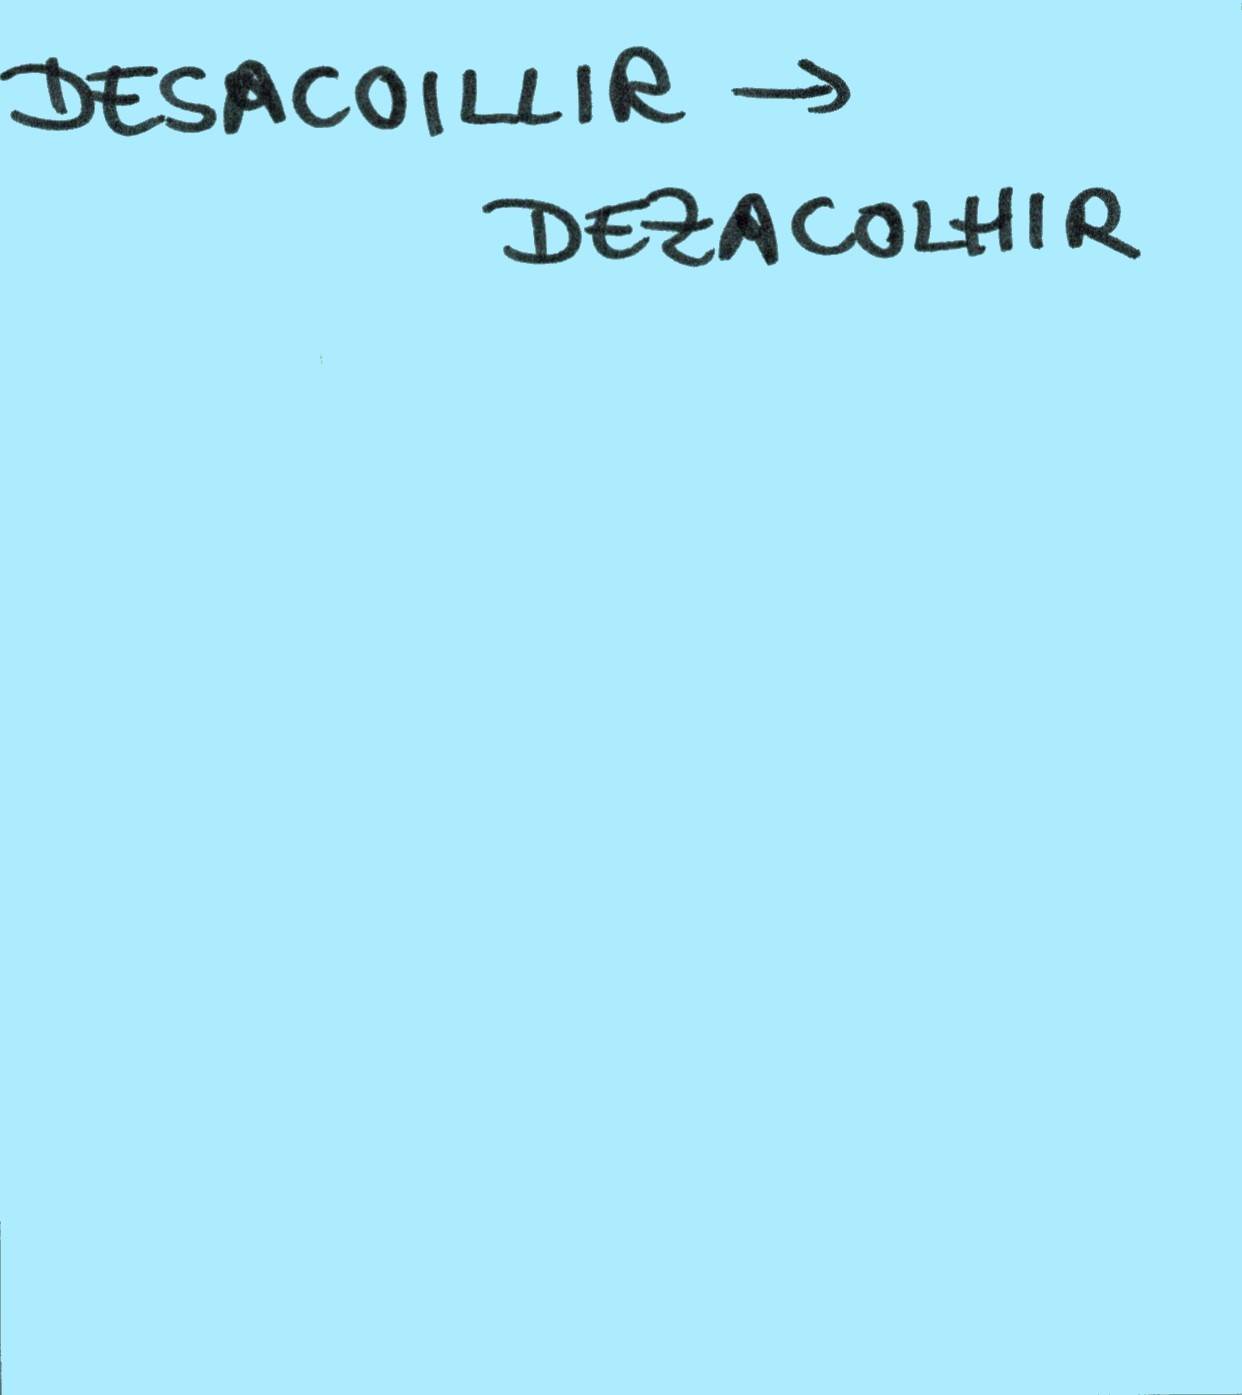 DESACOILLIR →
DEZACOLHIR